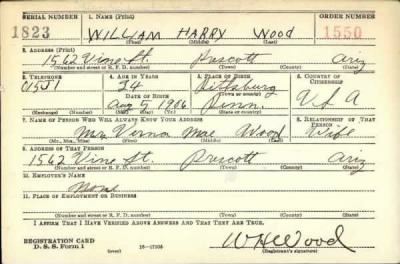 SERIAL NUMBER 1. NAME (Print) ORDER NUMBER
1823 WILLIAM HARRY WOOD 1550
(First) (Middle) (Last)
2. ADDRESS (Print)
1562 Vine St. Prescott Ariz
(Number and street or R. F. D. number) (Town) (County) (State)
3. TELEPHONE 4. AGE IN YEARS 5. PLACE OF BIRTH 6. COUNTRY OF CITIZENSHIP
34 Pittsburg
DATE OF BIRTH (Town or county)
Aug 5, 1906 Penn. U S A
(Exchange) (Number) (Mo.) (Day) (Yr.) (State or country)
7. NAME OF PERSON WHO WILL ALWAYS KNOW YOUR ADDRESS 8. RELATIONSHIP OF THAT PERSON
Mrs Verna Mae Wood Wife
(Mr., Mrs., Miss) (First) (Middle) (Last)
9. ADDRESS OF THAT PERSON
1562 Vine St. Prescott Ariz
(Number and street or R. F. D. number) (Town) (County) (State)
10. EMPLOYER'S NAME
None
11. PLACE OF EMPLOYMENT OR BUSINESS
(Number and street or R. F. D. number) (Town) (County) (State)
I AFFIRM THAT I HAVE VERIFIED ABOVE ANSWERS AND THAT THEY ARE TRUE.
REGISTRATION CARD
D. S. S. Form 1 16—17105 W H Wood
(Registrant's signature)